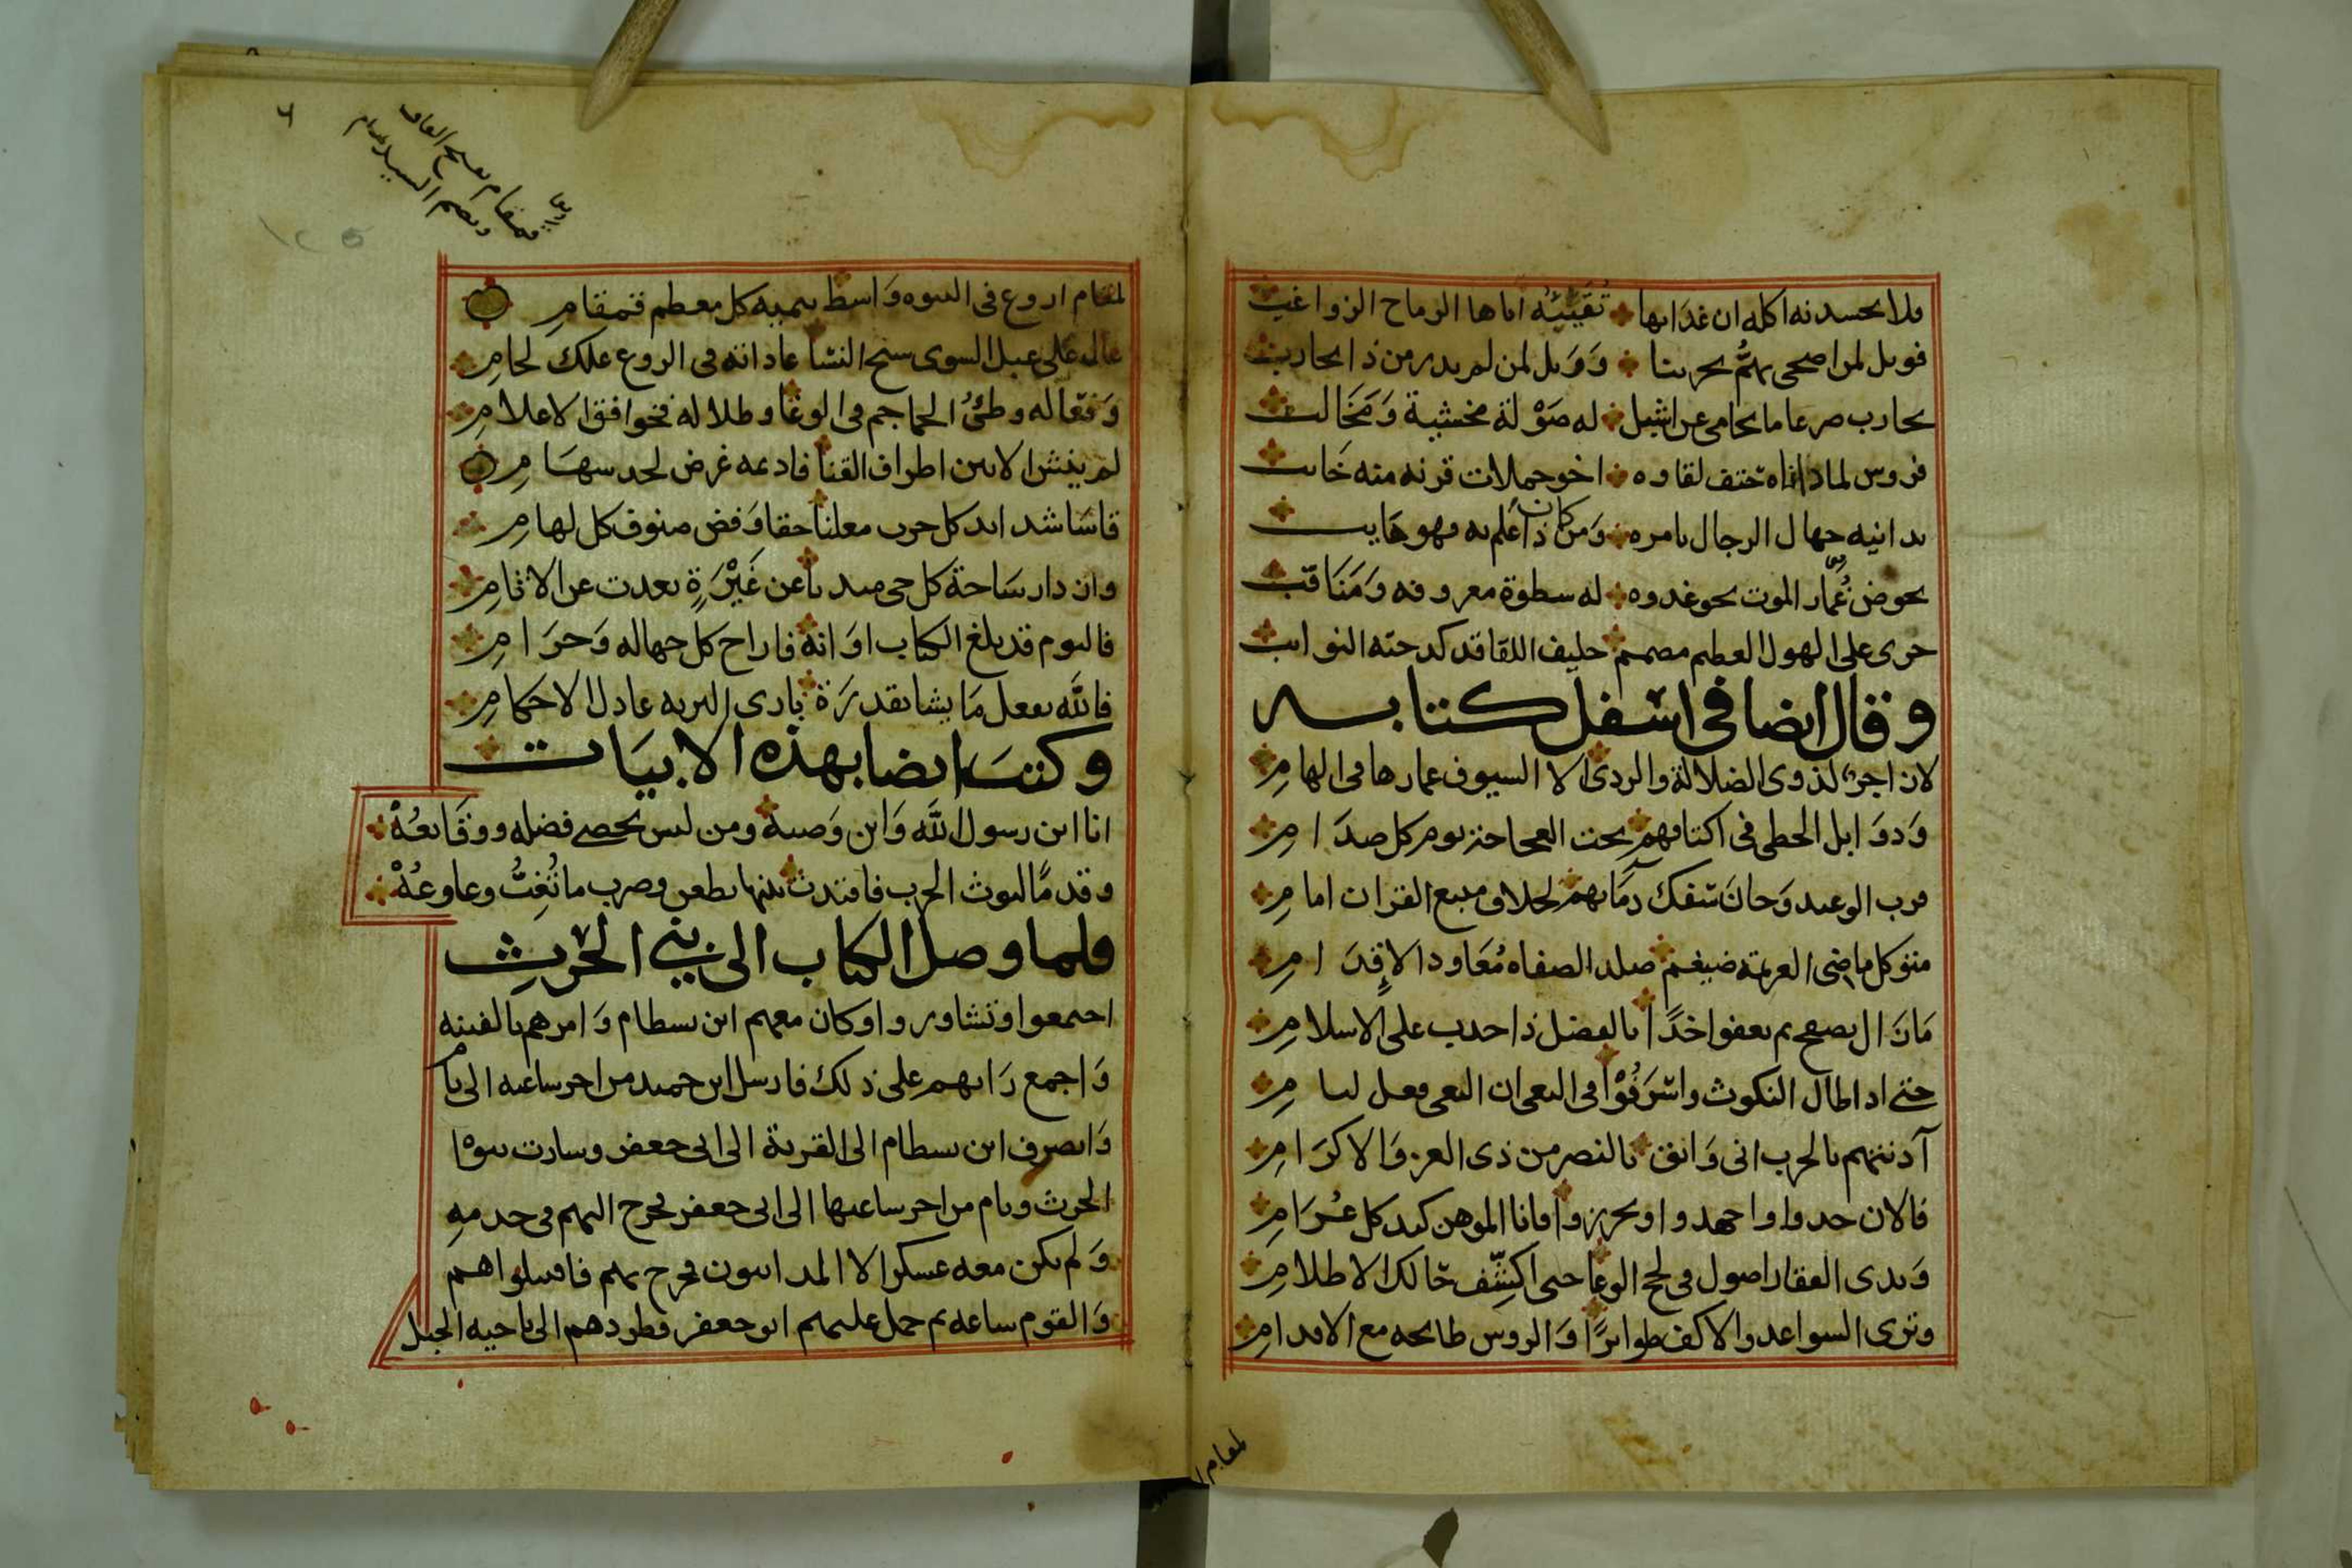 فلا تحسدنه اكله ان غدا بها تقيئه اياها الرماح الزواغب
فويل لمن اضحى يهم بحربنا وويل لمن لم يدر من ذا يحارب
يحارب ضرعاما يحامى عن اشبل له صولة مخشية ومخالب
فروس لما داناه حتف لقاوه اخو حملات قرنه منه خايب
يدانيه جهال الرجال بامره ومن كان ذا علم به فهو هايب
يخوض غمار الموت نحو عدوه له سطوة معروفه ومناقب
جرى على الهول العظيم مصمم حليف اللقا قد كدحته النوايب
وقال ايضا فى اسفل كتابه
لان اجر لذوى الضلالة والردى الا السيوف غمارها فى الهام
ودوابل الخطى فى اكتافهم تحت العجاجة يوم كل صدام
قرب الوعيد وحان سفك دمايهم لخلاف متبع القران امام
متوكل ماضى العزيمة ضيغم صلد الصفاه معاود الاقدام
مان ال يصفح ثم يعفوا اخذا بالفضل ذا حدب على الاسلام
حتى ادا طال النكوث واسرفوا فى البغى ان البغى فعل ليام
آدنتهم بالحرب انى واثق بالنصر من ذى العز والاكرام
فالان جدوا واجهدوا وتحرزوا فانا الموهن كيد كل عرام
وبدى الفقار اصول فى لجج الوغا حتى اكشف حالك الاظلام
وترى السواعد والاكف طوايرا والروس طايحه مع الاقدام
لمقام
لمقام اروع فى النبوه واسط ينميه كل معظم قمقام
عال على عبل الشوى سنح النشا عاداته فى الروع علك لجام
وفعاله وطئ الجماجم فى الوغا وظلاله نحو افق الاعلام
لم يغش الا بين اطراف القنا فاديمه غرض لحد سهام
قاسا شدايد كل حرب معلنا حقا وفض صفوف كل لهام
وان دار ساحة كل حى مبديا عن غيرة بعدت عن الاثام
فاليوم قد بلغ الكتاب اوانه فاراح كل جهاله وحرام
فالله يفعل ما يشا بقدرة بارى البريه عادل الاحكام
وكتب ايضا بهذه الابيات
انا ابن رسول الله وابن وصيه ومن ليس يحصى فضله ووقايعه
وقدما ليوث الحرب فاقتدت بنيها بطعن وضرب ما تغب وعاوعه
فلما وصل الكتاب الى بنى الحرث
اجتمعوا وتشاوروا وكان معهم ابن بسطام وامرهم بالفتنه
واجمع رايهم على ذلك فارسل ابن حميد من اخر ساعته الى يام
وانصرف ابن بسطام الى القرية الى ابى جعفر وسارت بنوا
الحرث ويام من اخر ساعتها الى ابى جعفر فخرج اليهم فى خدمه
ولم يكن معه عسكر الا المدانيون فخرج بهم فاقتتلوا هم
والقوم ساعه ثم حمل عليهم ابو جعفر فطردهم الى ناحيه الجبل